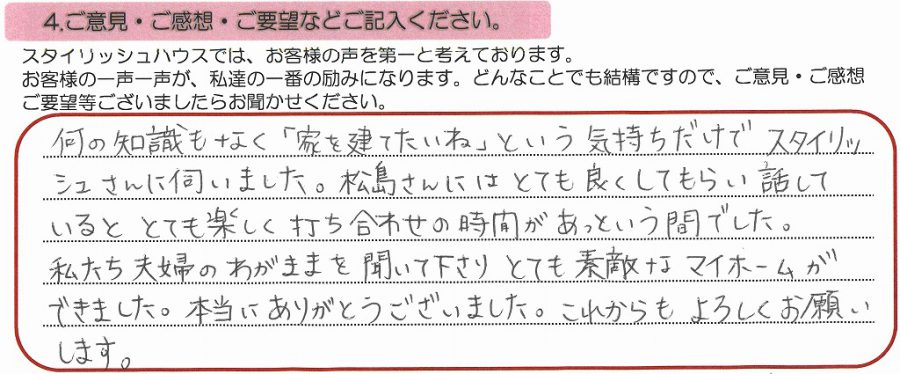 4.ご意見・ご感想・ご要望などご記入ください。
スタイリッシュハウスでは、お客様の声を第一と考えております。
お客様の一声一声が、私達の一番の励みになります。どんなことでも結構ですので、ご意見・ご感想
ご要望等ございましたらお聞かせください。
何の知識もなく「家を建てたいね」という気持ちだけでスタイリッ
シュさんに伺いました。松島さんにはとても良くしてもらい話して
いるととても楽しく打ち合わせの時間があっという間でした。
私たち夫婦のわがままを聞いて下さりとても素敵なマイホームが
できました。本当にありがとうございました。これからもよろしくお願い
します。